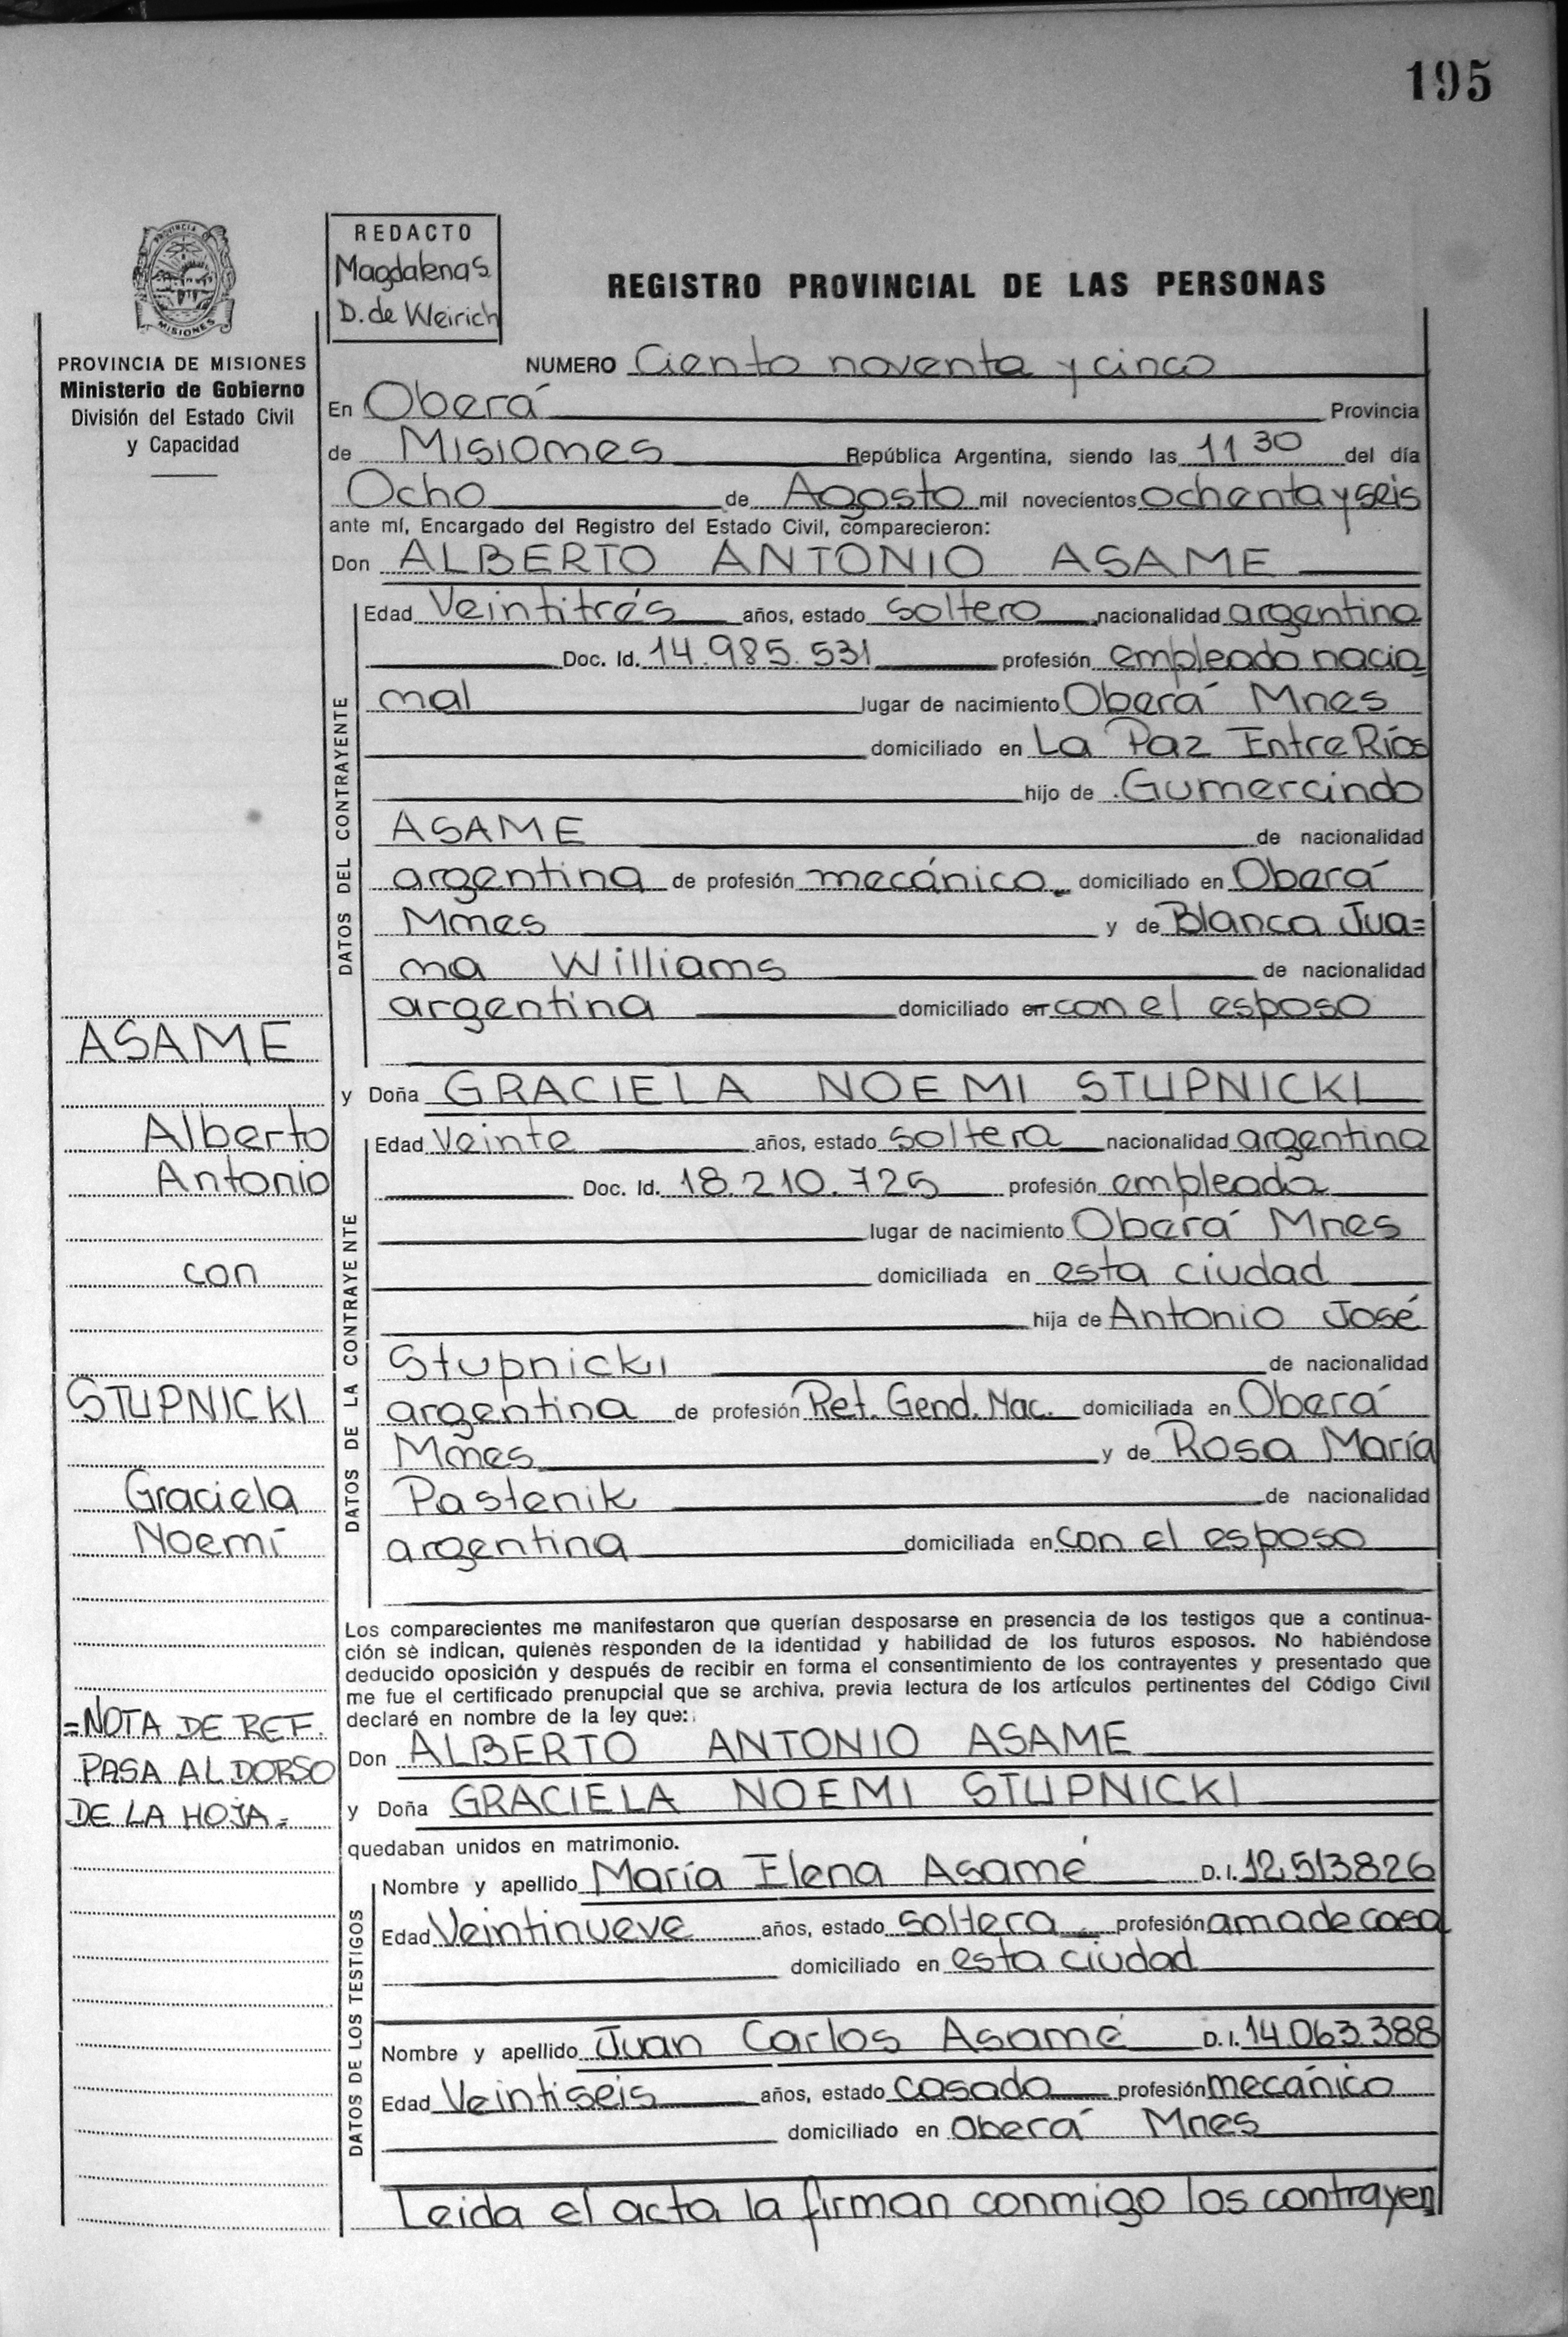 195
REDACTO
Magdalena S.
D. de Weirich
REGISTRO PROVINCIAL DE LAS PERSONAS
MISIONES
PROVINCIA DE MISIONES
Ministerio de Gobierno
División del Estado Civil
y Capacidad
NUMERO Ciento noventa y cinco
En Oberá Provincia
de Misiones República Argentina, siendo las 11 30 del día
Ocho de Agosto mil novecientos ochenta y seis
ante mí, Encargado del Registro del Estado Civil, comparecieron:
Don ALBERTO ANTONIO ASAME
DATOS DEL CONTRAYENTE
Edad Veintitrés años, estado soltero nacionalidad argentina
Doc. Id. 14.985.531 profesión empleado nacio
nal lugar de nacimiento Oberá Mnes
domiciliado en La Paz Entre Ríos
hijo de Gumercindo
ASAME de nacionalidad
argentina de profesión mecánico domiciliado en Oberá
Mnes y de Blanca Jua=
na Williams de nacionalidad
argentina domiciliado en con el esposo
y Doña GRACIELA NOEMI STUPNICKI
DATOS DE LA CONTRAYENTE
Edad Veinte años, estado soltera nacionalidad argentina
Doc. Id. 18.210.725 profesión empleada
lugar de nacimiento Oberá Mnes
domiciliada en esta ciudad
hija de Antonio José
Stupnicki de nacionalidad
argentina de profesión Ret. Gend. Nac. domiciliada en Oberá
Mnes y de Rosa María
Pastenik de nacionalidad
argentina domiciliada en con el esposo
Los comparecientes me manifestaron que querían desposarse en presencia de los testigos que a continua-
ción se indican, quienes responden de la identidad y habilidad de los futuros esposos. No habiéndose
deducido oposición y después de recibir en forma el consentimiento de los contrayentes y presentado que
me fue el certificado prenupcial que se archiva, previa lectura de los artículos pertinentes del Código Civil
declaré en nombre de la ley que:
Don ALBERTO ANTONIO ASAME
y Doña GRACIELA NOEMI STUPNICKI
quedaban unidos en matrimonio.
DATOS DE LOS TESTIGOS
Nombre y apellido María Elena Asamé D. I. 12.513826
Edad Veintinueve años, estado soltera profesión ama de casa
domiciliado en esta ciudad
Nombre y apellido Juan Carlos Asamé D. I. 14.063.388
Edad Veintiseis años, estado casado profesión mecánico
domiciliado en Oberá Mnes
Leida el acta la firman conmigo los contrayen
ASAME
Alberto
Antonio
con
STUPNICKI
Graciela
Noemí
=NOTA DE REF.
PASA AL DORSO
DE LA HOJA=